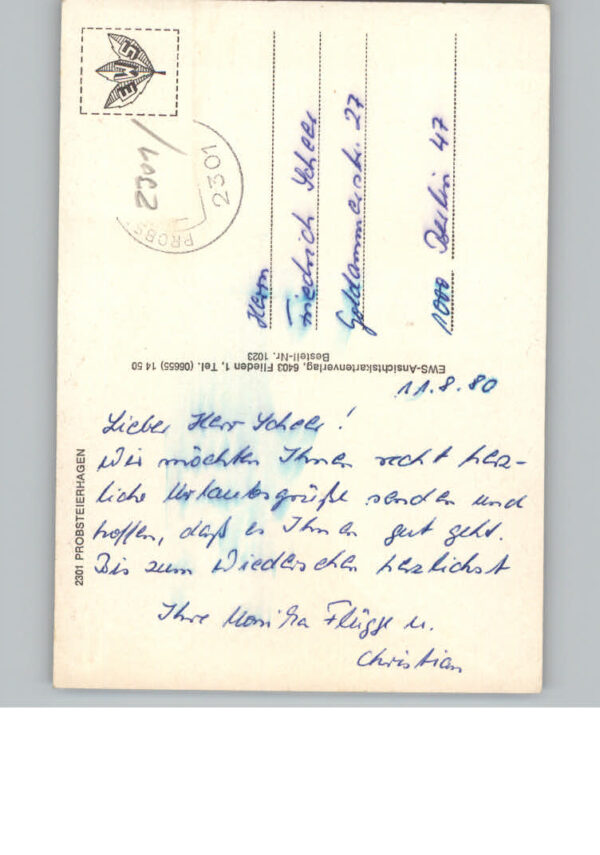 EWS
2301
PROBS
2301
Herrn
Friedrich Scheer
Goldammerstr. 27
1000 Berlin 47
EWS-Ansichtskartenverlag, 6403 Flieden 1, Tel. (06655) 14 50
Bestell-Nr. 1023
2301 PROBSTEIERHAGEN
11.8.80
Lieber Herr Scheer!
Wir möchten Ihnen recht herz-
liche Urlaubsgrüße senden und
hoffen, daß es Ihnen gut geht.
Bis zum Wiedersehen herzlichst
Ihre Monika Flügge u.
Christian